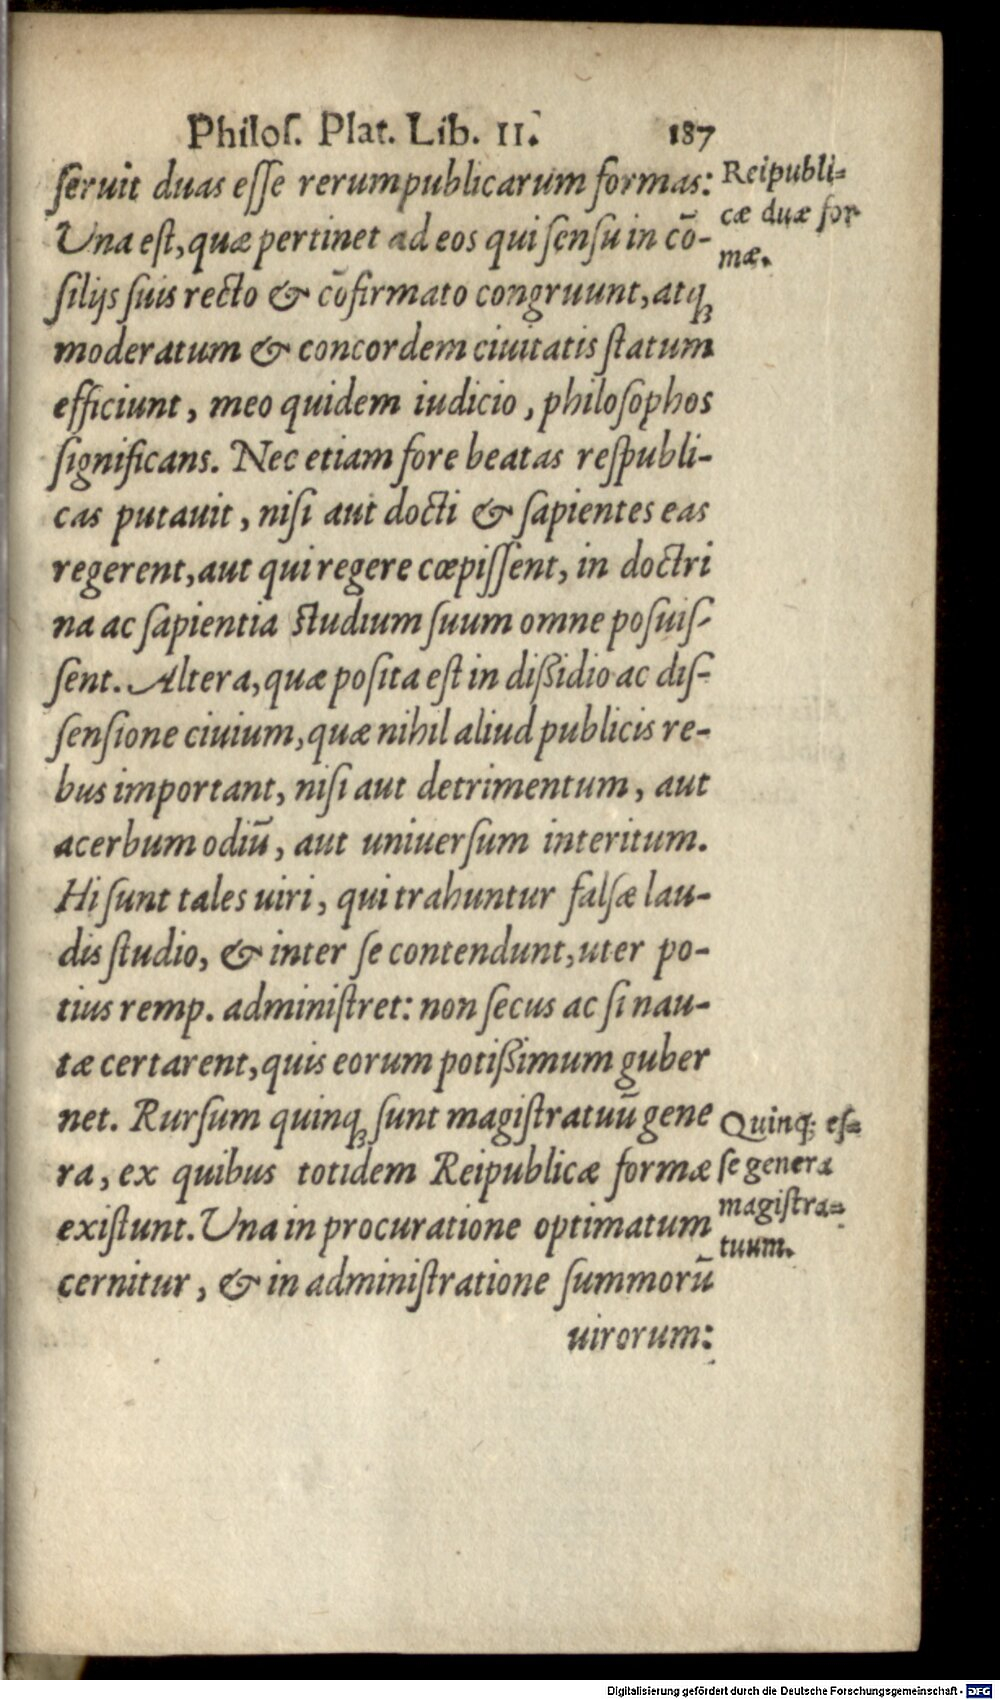 Philoſ. Plat. Lib. II. 187
ſeruit duas eſſe rerumpublicarum formas:
Una eſt, quæ pertinet ad eos qui ſenſu in cō-
ſilijs ſuis recto & cōfirmato congruunt, atq;
moderatum & concordem ciuitatis ſtatum
efficiunt, meo quidem iudicio, philoſophos
ſignificans. Nec etiam fore beatas reſpubli-
cas putauit, niſi aut docti & ſapientes eas
regerent, aut qui regere cœpiſſent, in doctri
na ac ſapientia ſtudium ſuum omne poſuiſ-
ſent. Altera, quæ poſita eſt in dißidio ac diſ-
ſenſione ciuium, quæ nihil aliud publicis re-
bus important, niſi aut detrimentum, aut
acerbum odiū, aut uniuerſum interitum.
Hi ſunt tales uiri, qui trahuntur falſæ lau-
dis ſtudio, & inter ſe contendunt, uter po-
tius remp. adminiſtret: non ſecus ac ſi nau-
tæ certarent, quis eorum potißimum guber
net. Rurſum quinq; ſunt magiſtratuū gene
ra, ex quibus totidem Reipublicæ formæ
exiſtunt. Una in procuratione optimatum
cernitur, & in adminiſtratione ſummorū
uirorum:
Reipubli=
cæ duæ for
mæ.
Quinq; eſ=
ſe genera
magiſtra=
tuum.
Digitalisierung gefördert durch die Deutsche Forschungsgemeinschaft - DFG